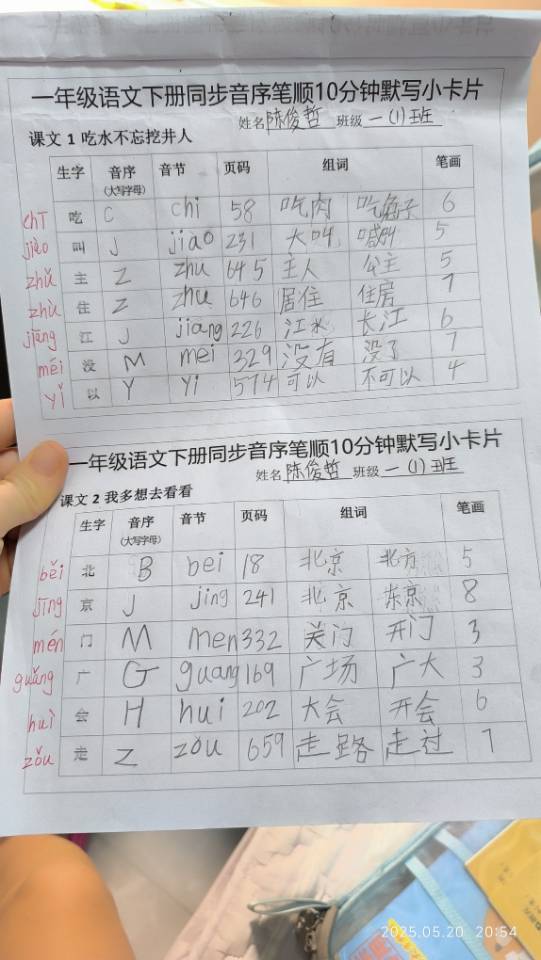 一年级语文下册同步音序笔顺10分钟默写小卡片
姓名 陈俊哲 班级 一(1)班
课文 1 吃水不忘挖井人
生字 音序 音节 页码 组词 笔画
(大写字母)
chī 吃 C chi 58 吃肉 吃包子 6
jiào 叫 J jiao 231 大叫 喊叫 5
zhǔ 主 Z zhu 645 主人 公主 5
zhù 住 Z zhu 646 居住 住房 7
jiāng 江 J jiang 226 江水 长江 6
méi 没 M mei 329 没有 没了 7
yǐ 以 Y yi 574 可以 不可以 4
一年级语文下册同步音序笔顺10分钟默写小卡片
姓名 陈俊哲 班级 一(1)班
课文 2 我多想去看看
生字 音序 音节 页码 组词 笔画
(大写字母)
běi 北 B bei 18 北京 北方 5
jīng 京 J jing 241 北京 东京 8
mén 门 M men 332 关门 开门 3
guǎng 广 G guang 169 广场 广大 3
huì 会 H hui 202 大会 开会 6
zǒu 走 Z zǒu 659 走路 走过 7
2025.05.20 20:54